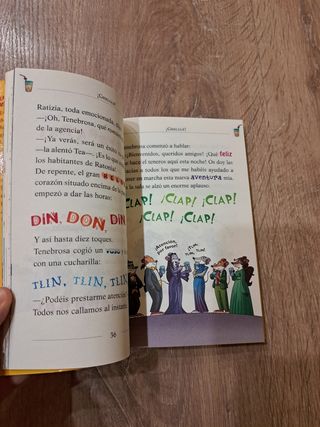 ¡GRILLLI!
Ratizia, toda emocionada,
—¡Oh, Tenebrosa, qué
de la agencia!
—¡Ya verás, será un éxito
—la alentó Tea—. ¡Es lo que
los habitantes de Ratonia!
De repente, el gran
corazón situado encima de la
empezó a dar las horas:
DIN, DON, DIN
Y así hasta diez toques.
Tenebrosa cogió un
con una cucharilla:
TLIN, TLIN, TLIN
—¿Podéis prestarme atención
Todos nos callamos al instante
56
Tenebrosa comenzó a hablar:
¡Bienvenidos, queridos amigos! ¡Qué feliz
hace teneros aquí esta noche! Os doy las
a todos los que me habéis ayudado a
en marcha esta nueva aventura mía.
la sala se alzó un enorme aplauso:
¡CLAP! ¡CLAP! ¡CLAP!
¡CLAP! ¡CLAP!
¡Atención, por favor!
¡Tlin, tlin, tlin!